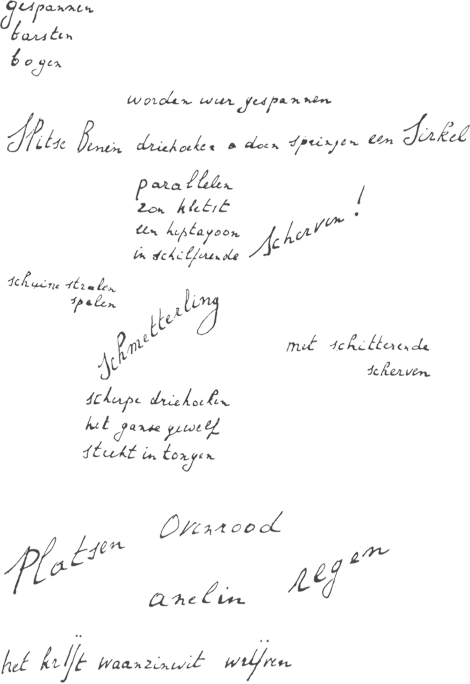 gespannen
barsten
bogen
worden weer gespannen
Hitse Benen driehoeken doen springen een Sirkel
parallelen
zon kletst
een heptagoon
in schilferende Scherven!
schuine stralen
spelen
Schmetterling
met schitterende
scherven
scherpe driehoeken
het ganse gewelf
steekt in tongen
Ovenrood
Platsen regen
anelin
het krijst waanzinwit wrijven